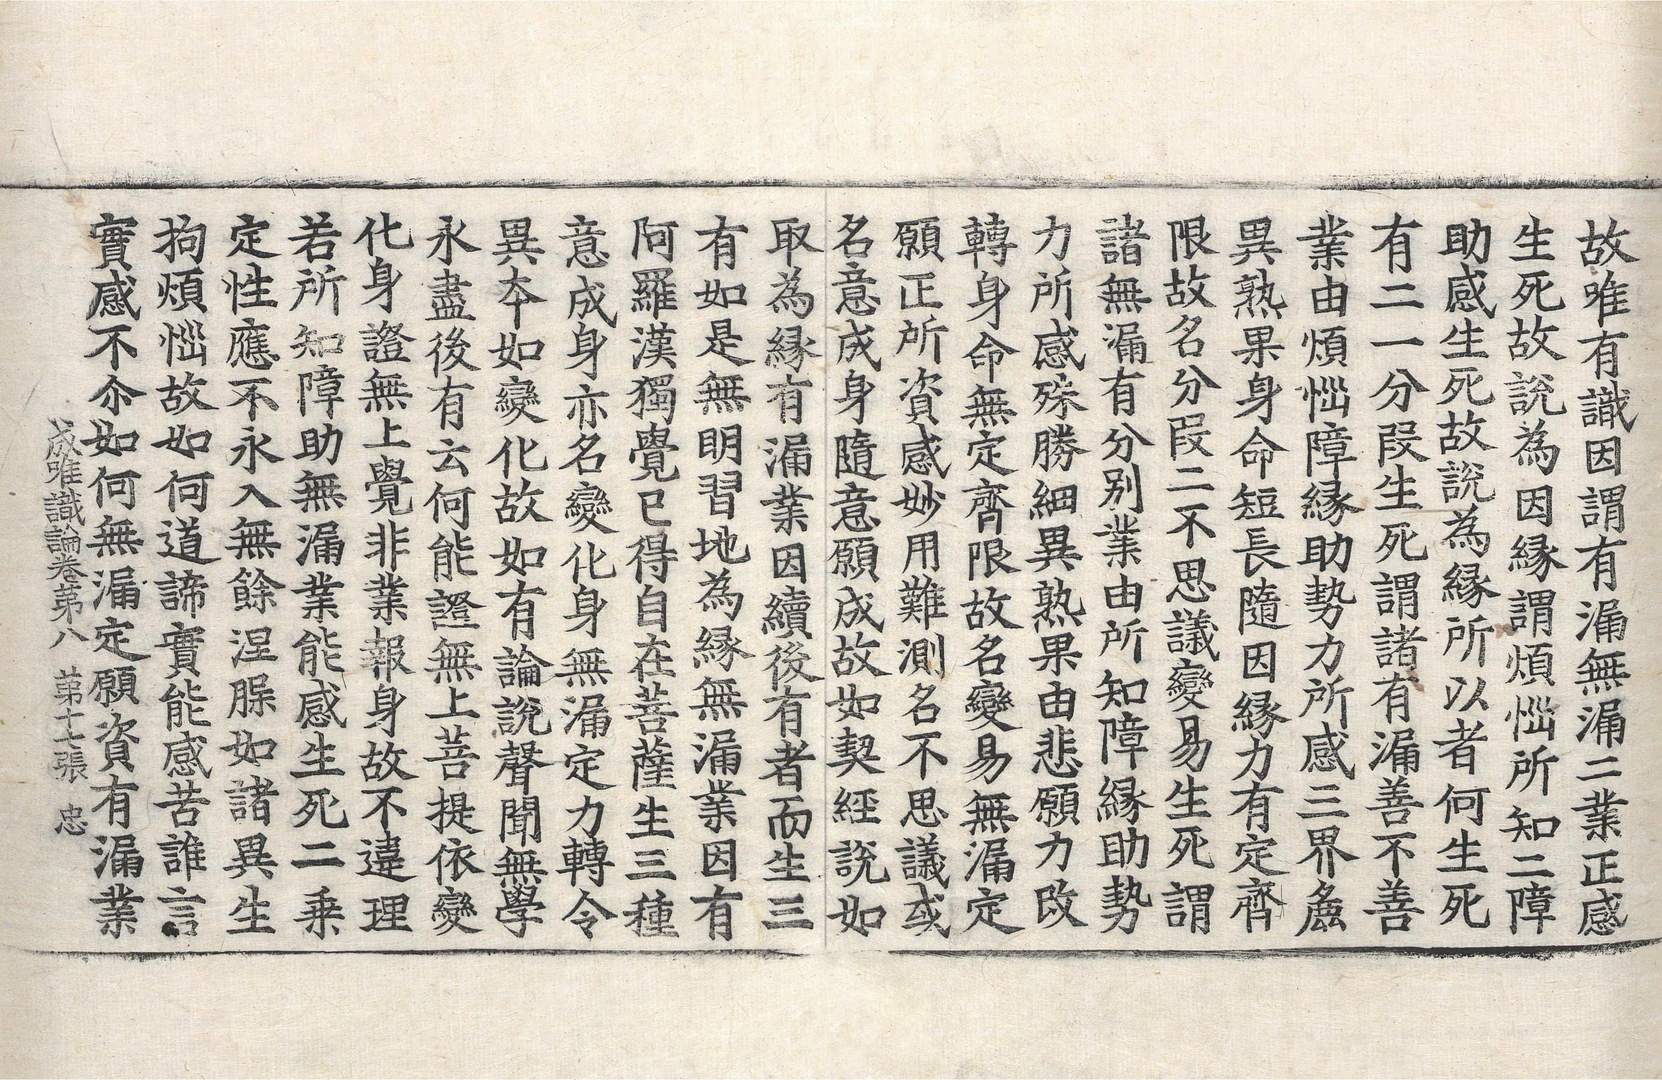 故唯有識因謂有漏無漏二業正感
生死故說為因緣謂煩惱所知二障
助感生死故說為緣所以者何生死
有二一分段生死謂諸有漏善不善
業由煩惱障緣助勢力所感三界麁
異熟果身命短長隨因緣力有定齊
限故名分段二不思議變易生死謂
諸無漏有分別業由所知障緣助勢
力所感殊勝細異熟果由悲願力改
轉身命無定齊限故名變易無漏定
願正所資感妙用難測名不思議或
名意成身隨意願成故如契經說如
取為緣有漏業因續後有者而生三
有如是無明習地為緣無漏業因有
阿羅漢獨覺已得自在菩薩生三種
意成身亦名變化身無漏定力轉令
異本如變化故如有論說聲聞無學
永盡後有云何能證無上菩提依變
化身證無上覺非業報身故不違理
若所知障助無漏業能感生死二乗
定性應不永入無餘涅槃如諸異生
拘煩惱故如何道諦實能感苦誰言
實感不尒如何無漏定願資有漏業
成唯識論卷第八　第十七張　忠